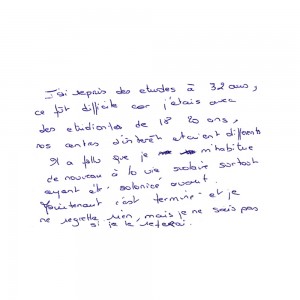 J'ai repris des etudes à 32 ans,
ce fût difficile car j'étais avec
des etudiants de 18 20 ans,
nos centres d'intérêt etaient différents
Il a fallu que je m'habitue
de nouveau à la vie scolaire surtout
ayant été salarié avant.
Maintenant c'est terminé et je
ne regrette rien, mais je ne sais pas
si je le referai.